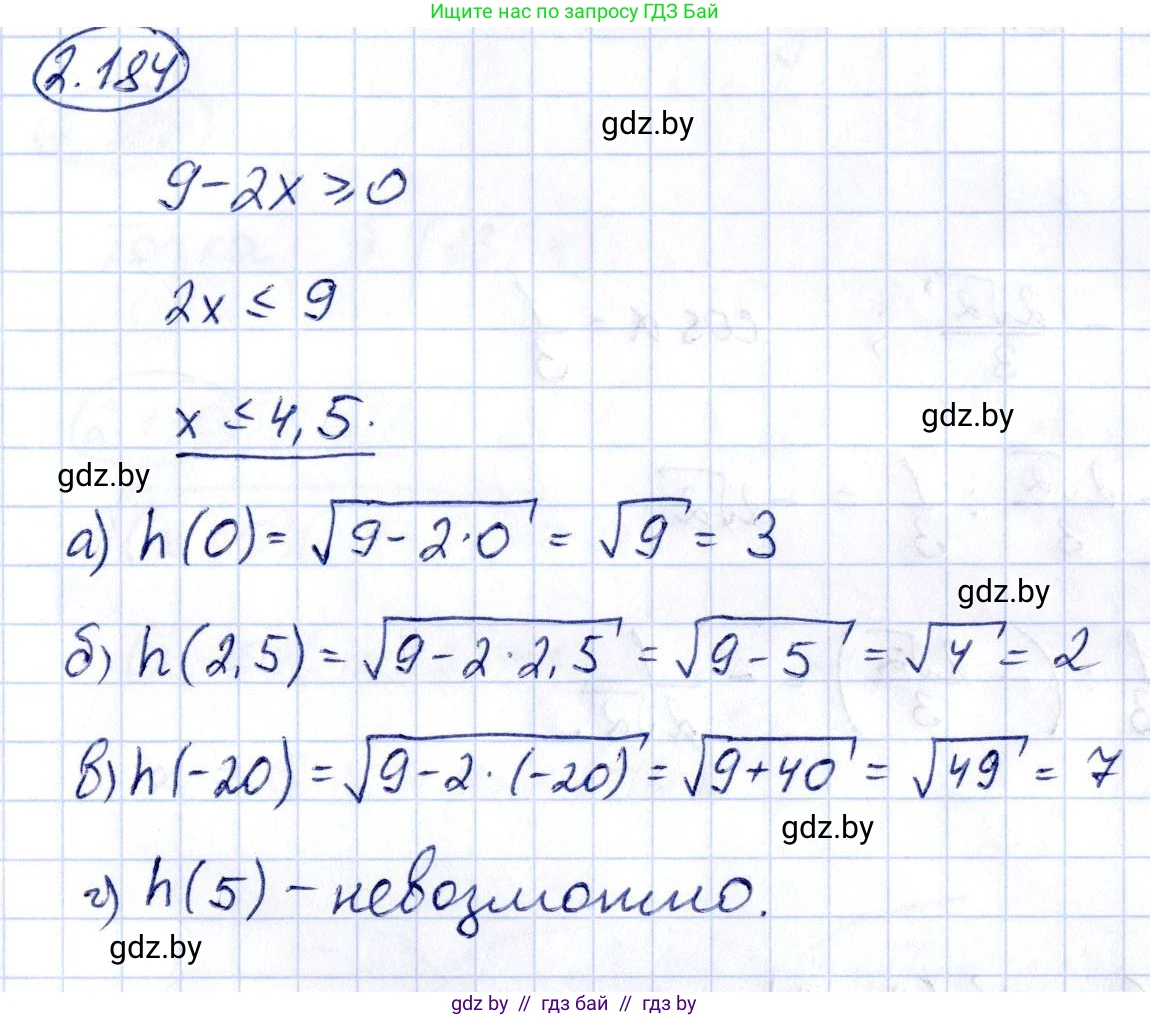 Ищите нас по запросу ГДЗ Бай
2.184
gdz.by
9-2x ≥ 0
2x ≤ 9
x ≤ 4,5.
gdz.by
gdz.by
а) h(0) = √(9-2·0) = √9 = 3
gdz.by
б) h(2,5) = √(9-2·2,5) = √(9-5) = √4 = 2
в) h(-20) = √(9-2·(-20)) = √(9+40) = √49 = 7
gdz.by
г) h(5) - невозможно.
gdz.by
gdz by // гдз бай // гдз by